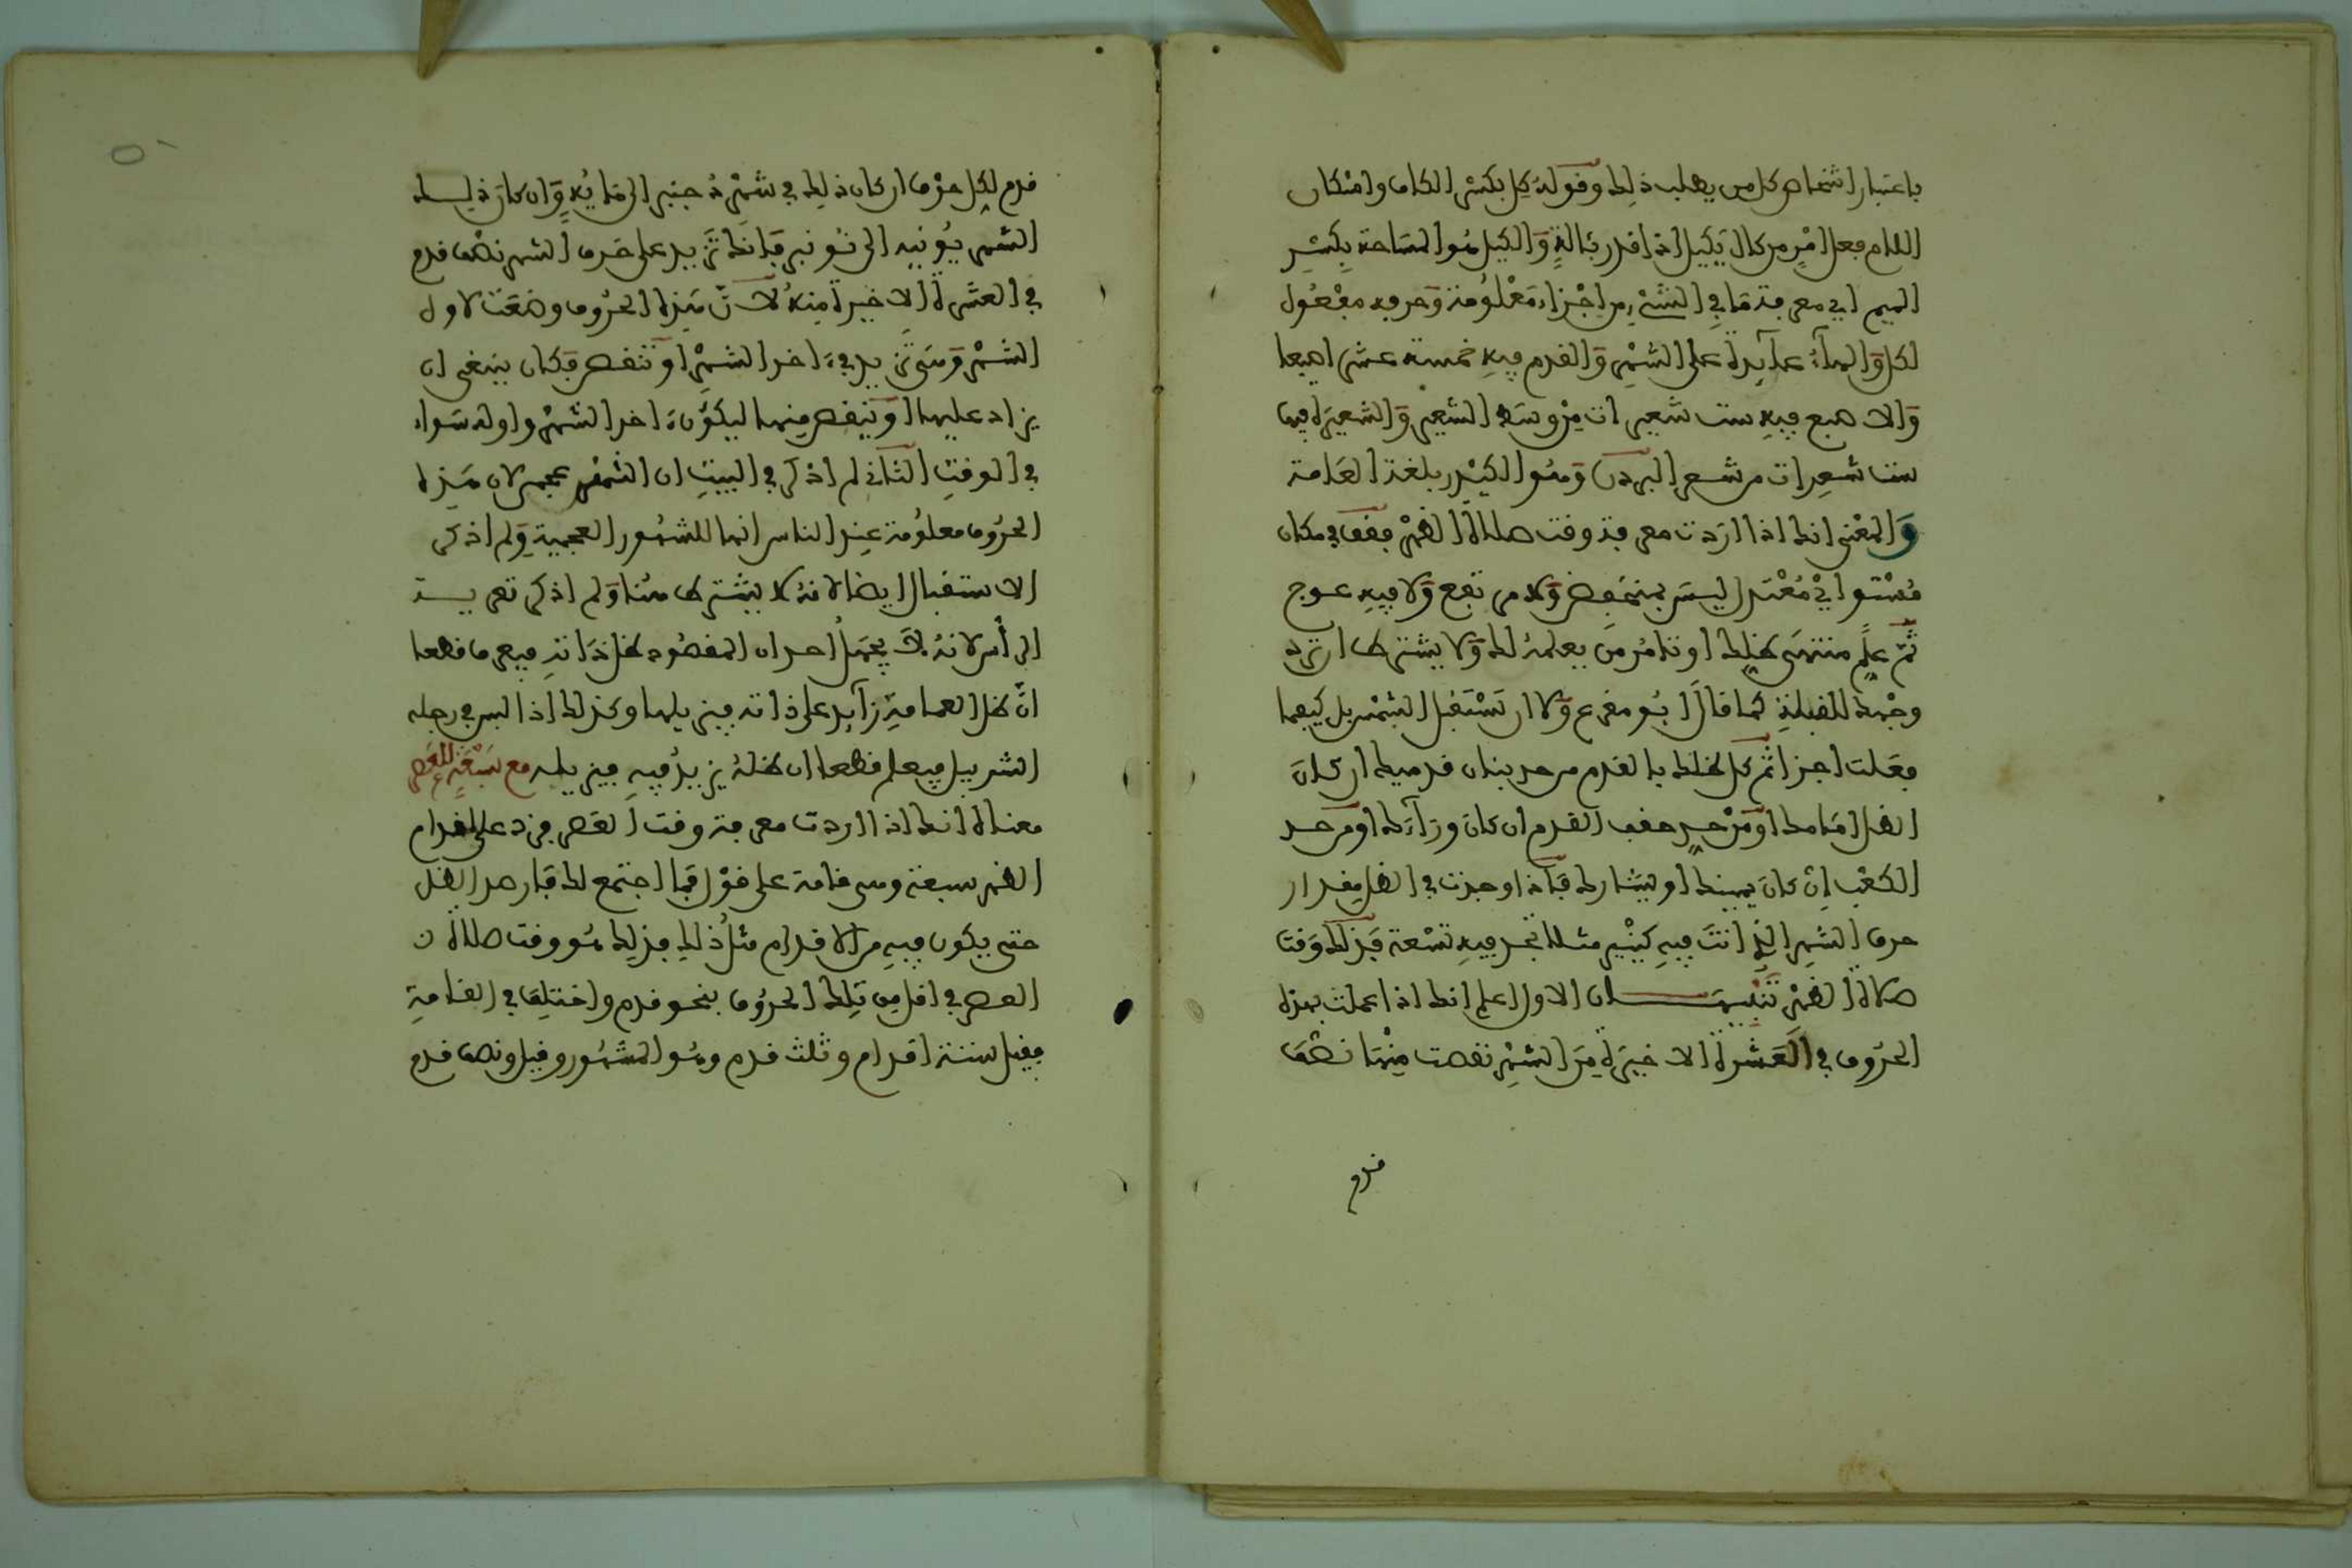 باعتبار اشخاص كل من يطلب ذلك وقوله كِل بكسر الكاف وامكان
اللام فعل امر من كال يَكيل اذا قدر بئالة وَالكيل هُو المسَاحة بِكسْرِ
الميم اي معرفة مَا في الشئ من اجْزاء مَعْلُومة وَحرفه مفعُول
لكل وَالهآءُ عآيِدة على الشهْرِ وَالقدم فِيهِ خمسة عشر اصبعا
وَالاصبع فِيهِ ست شعيرات مِن وسَط الشعير وَالشعيرَة فيها
ست شعرات من شعر البردَون وَهُو الكيْدر بلغة العَامة
وَالمعْنى انك اذا ارَدت معرفة وقت صلاة الظهْر فقف في مكان
مُسْتو ايْ مُعْتَدل ليسَ بمنخفِض وَلا مرتفع وَلا فِيهِ عوج
ثمَّ علِّم منتهَى ظِلك او تامُر من يعلمهُ لك وَلا يشترط ان ترد
وجْهك للقبلة كما قالَ ابُو مقرع وَلا ان تَسْتَقْبل الشمْس بل كيفما
فعَلت اجزا ثم كِل ظلك بالقدم من حد بنان قدميك ان كانَ
الظل امَامك او مَن حدٍ عقب القدم ان كانَ ورَآءَك او من حد
الكعْب اِنْ كانَ يمينك او يسَارك فَاذا وجدت في الظل مِقدار
حرف الشهرِ الذِي انتَ فِيهِ كينَّير مثلا تجد فِيهِ تسْعة فذَلك وَقت
صَلاة الظهْرِ تنْبِيهَـــان الاول اعلم انك اذا عملت بهذه
الحرُوف في العَشرة الاخيرَة مِنَ الشهْرِ نقصت مِنْهَا نصْفَ
قدم
قدم لكِل حرْف ان كان ذلِك في شهْر دُجنبر الى مَايُه وَان كانَ ذلـــك
الشهر يُونيه الى نُونبر فَانك تَزيد على حَرف الشهر نصْف قدم
في العشرة الاخيرة مِنهُ لاَنَّ هَذِه الحرُوف وضعَت لاول
الشهْر وَهَي تزيد في ءَاخر الشهْرِ اوْ تنقص فكان ينبغي ان
يزاد عليهَا اوْ ينقص مِنهَا ليكونَ ءَاخر الشهْر واوله سَواء
في الوقتِ الثاني لم اذكر في البيتِ ان الشهْر عجمي لان هَذِه
الحرُوف معلُومة عِند الناس انها للشهُور العجمية وَلم اذكر
الاستقبال ايضا لانهُ لا يشترط هُنا وَلم اذكر تعريـــة
الراس لانهُ لاَ يجهَلُ احد ان المقصُود ظل ذَاتهِ فيعرف قطعا
انّ ظل العمامة زآيد على ذاته فيزيلها وكذلك اذا لبس في رجله
الشربيل فيعلم قطعا ان ظلهُ يزيدُ فِيهِ فيزيله مع سَبْعَةٍ للعَصْرِ
معناه انك اذا اردت معرفة وقت العَصر فزد على اقدام
الظهر سبعة وهي قامة على فوْل فمَا اجتمع لك فَارصد الظل
حتى يكون فِيهِ من الاقدام مثلُ ذلك فذلِك هُو وقت صلاة
العصر في اقل من تِلك الحرُوف بنحو قدم واختلِف في القامةِ
فقيل ستة اقدام وثلث قدم وهُو المشهُور وقيل ونصف قدم